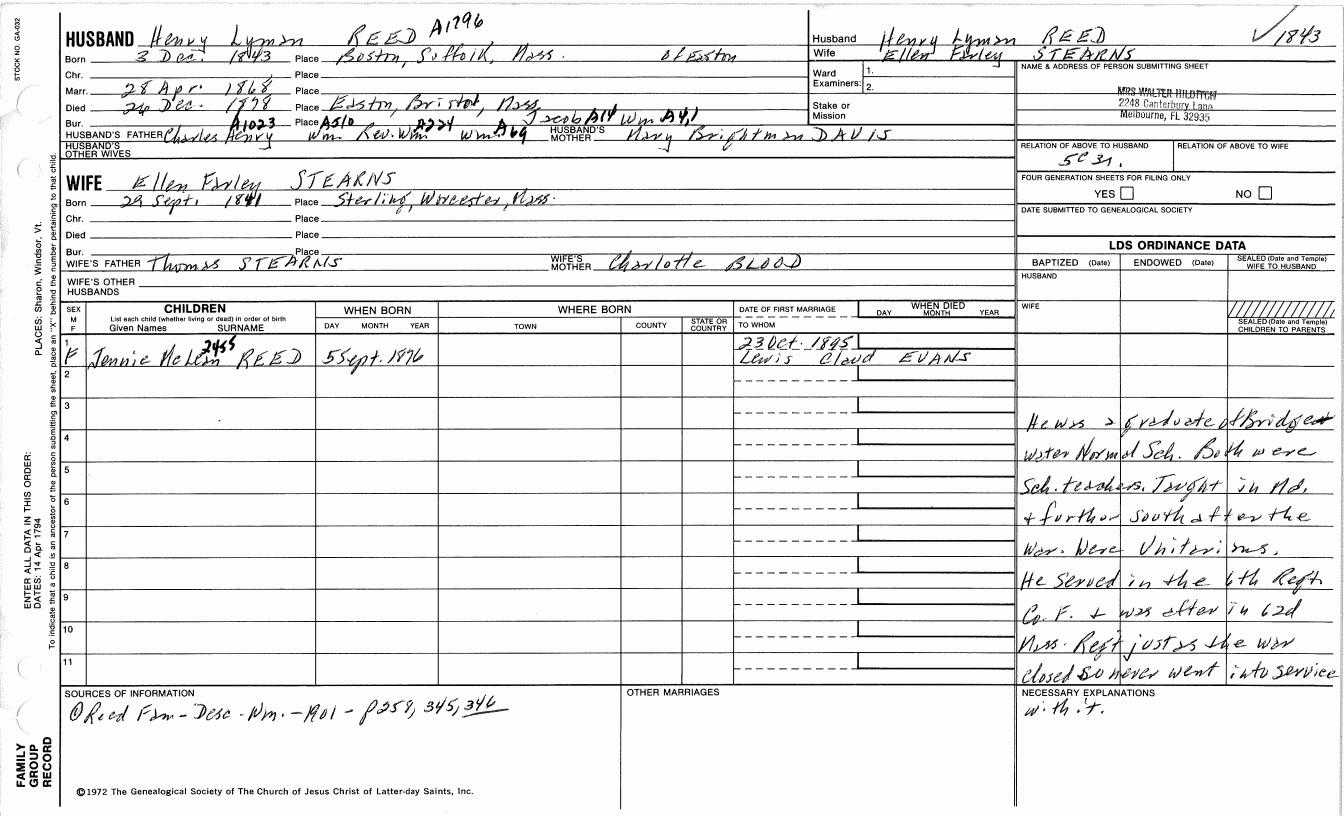 STOCK NO. GA-032
HUSBAND Henry Lyman REED A1796
Born 3 Dec. 1843 Place Boston, Suffolk, Mass. of Easton
Chr. Place
Marr. 28 Apr. 1868 Place
Died 26 Dec. 1898 Place Easton, Bristol, Mass
Bur. Place
A1023 A510 A224 A69 Jacob A14 Wm A4,1
HUSBAND'S FATHER Charles Henry Wm Rev. Wm Wm HUSBAND'S MOTHER Mary Brightman DAVIS
HUSBAND'S OTHER WIVES
WIFE Ellen Farley STEARNS
Born 29 Sept. 1841 Place Sterling, Worcester, Mass.
Chr. Place
Died Place
Bur. Place
WIFE'S FATHER Thomas STEARNS WIFE'S MOTHER Charlotte BLOOD
WIFE'S OTHER HUSBANDS
Husband Henry Lyman REED ✓1843
Wife Ellen Farley STEARNS
Ward Examiners: 1.
2.
Stake or Mission
NAME & ADDRESS OF PERSON SUBMITTING SHEET
MRS WALTER HILDITCH
2248 Canterbury Lane
Melbourne, FL 32935
RELATION OF ABOVE TO HUSBAND RELATION OF ABOVE TO WIFE
5C 3r.
FOUR GENERATION SHEETS FOR FILING ONLY
YES NO
DATE SUBMITTED TO GENEALOGICAL SOCIETY
LDS ORDINANCE DATA
BAPTIZED (Date) ENDOWED (Date) SEALED (Date and Temple) WIFE TO HUSBAND
HUSBAND
WIFE
SEALED (Date and Temple) CHILDREN TO PARENTS
SEX M F
CHILDREN
List each child (whether living or dead) in order of birth
Given Names SURNAME
WHEN BORN
DAY MONTH YEAR
WHERE BORN
TOWN COUNTY STATE OR COUNTRY
DATE OF FIRST MARRIAGE
TO WHOM
WHEN DIED
DAY MONTH YEAR
1 F Jennie McLean 2455 REED 5 Sept. 1876 23 Oct. 1895
Lewis Cloud EVANS
2
3
4
5
6
7
8
9
10
11
He was a graduate of Bridge
water Normal Sch. Both were
Sch. teachers. Taught in Md.
+ further south after the
War. Were Unitarians.
He served in the 6th Regt
Co. F. + was after in 62d
Mass. Reg't just as the war
closed so never went into service
NECESSARY EXPLANATIONS
with it.
SOURCES OF INFORMATION
① Reed Fam - Desc. Wm. - 1901 - p259, 345, 346
OTHER MARRIAGES
©1972 The Genealogical Society of The Church of Jesus Christ of Latter-day Saints, Inc.
FAMILY GROUP RECORD
ENTER ALL DATA IN THIS ORDER:
DATES: 14 Apr 1794 PLACES: Sharon, Windsor, Vt.
To indicate that a child is an ancestor of the person submitting the sheet, place an "X" behind the number pertaining to that child.